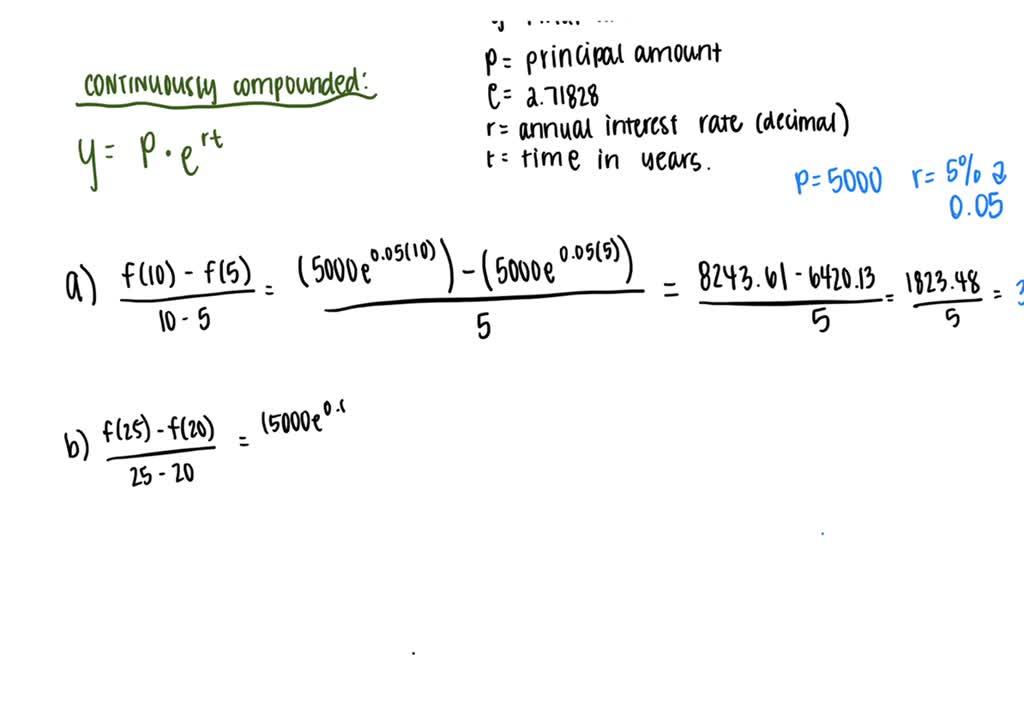 P = principal amount
CONTINUOUSLY compounded:
e = 2.71828
r = annual interest rate (decimal)
y = P · e^rt
t = time in years.
P = 5000 r = 5%
0.05
a) f(10) - f(5) / 10 - 5 = (5000e^0.05(10)) - (5000e^0.05(5)) / 5 = 8243.61 - 6420.13 / 5 = 1823.48 / 5 =
b) f(25) - f(20) / 25 - 20 = (5000e^0.